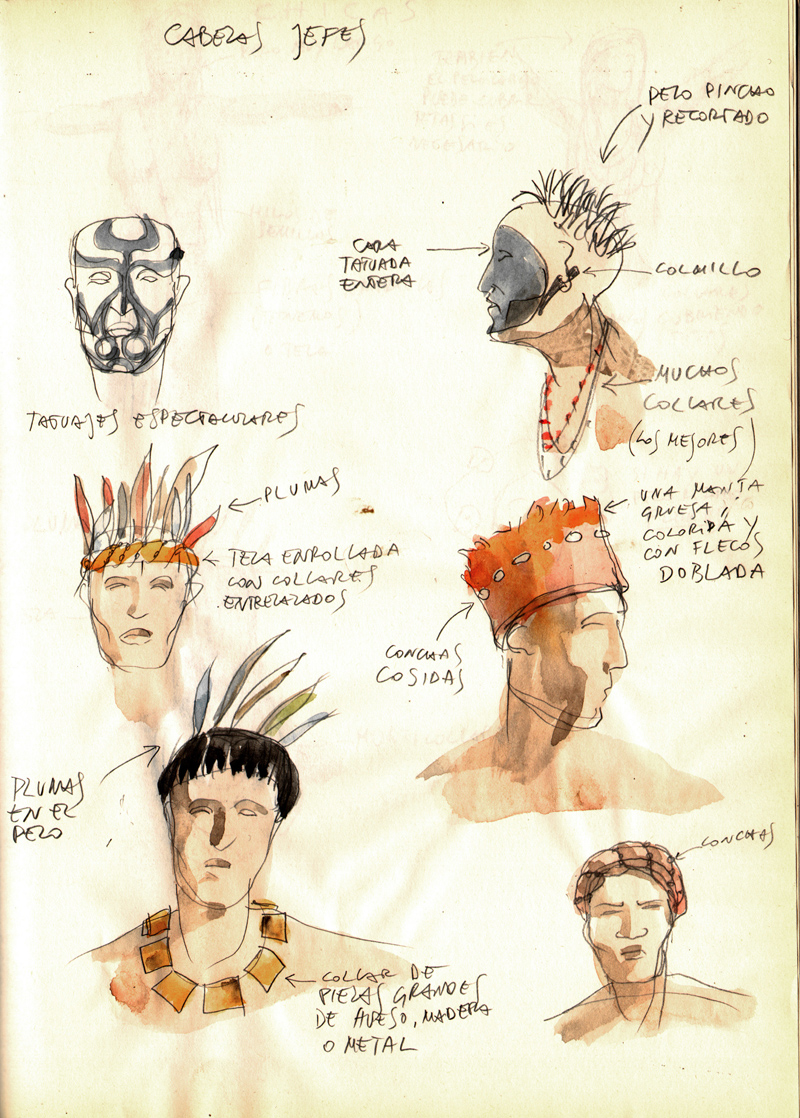 CABEZAS JEFES
PELO PINCHO
Y RECORTADO
CARA
TATUADA
ENTERA
COLMILLO
MUCHOS
COLLARES
(LOS MEJORES)
TATUAJES ESPECTACULARES
PLUMAS
TELA ENROLLADA
CON COLLARES
ENTRELAZADOS
UNA MANTA
GRUESA,
COLORIDA Y
CON FLECOS
DOBLADA
CONCHAS
COSIDAS
PLUMAS
EN EL
PELO
CONCHAS
COLLAR DE
PIEZAS GRANDES
DE HUESO, MADERA
O METAL